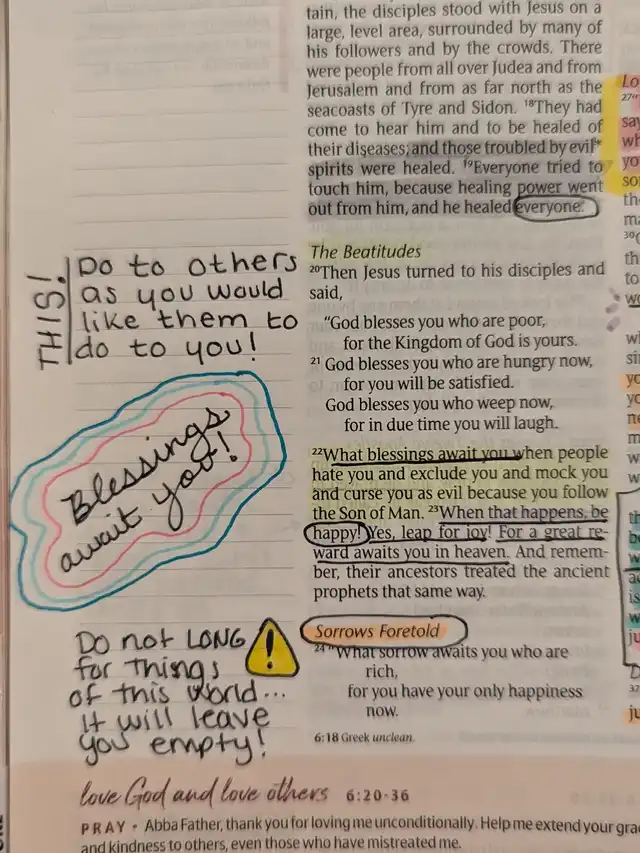 tain, the disciples stood with Jesus on a
large, level area, surrounded by many of
his followers and by the crowds. There
were people from all over Judea and from
Jerusalem and from as far north as the
seacoasts of Tyre and Sidon. 18They had
come to hear him and to be healed of
their diseases; and those troubled by evil*
spirits were healed. 19Everyone tried to
touch him, because healing power went
out from him, and he healed everyone.
THIS!
Do to others
as you would
like them to
do to you!
Blessings
await you!
Do not LONG
for things
of this world...
it will leave
you empty!
The Beatitudes
20Then Jesus turned to his disciples and
said,
"God blesses you who are poor,
for the Kingdom of God is yours.
21 God blesses you who are hungry now,
for you will be satisfied.
God blesses you who weep now,
for in due time you will laugh.
22What blessings await you when people
hate you and exclude you and mock you
and curse you as evil because you follow
the Son of Man. 23When that happens, be
happy! Yes, leap for joy! For a great re-
ward awaits you in heaven. And remem-
ber, their ancestors treated the ancient
prophets that same way.
Sorrows Foretold
24"What sorrow awaits you who are
rich,
for you have your only happiness
now.
6:18 Greek unclean.
love God and love others 6:20-36
PRAY • Abba Father, thank you for loving me unconditionally. Help me extend your
and kindness to others, even those who have mistreated me.